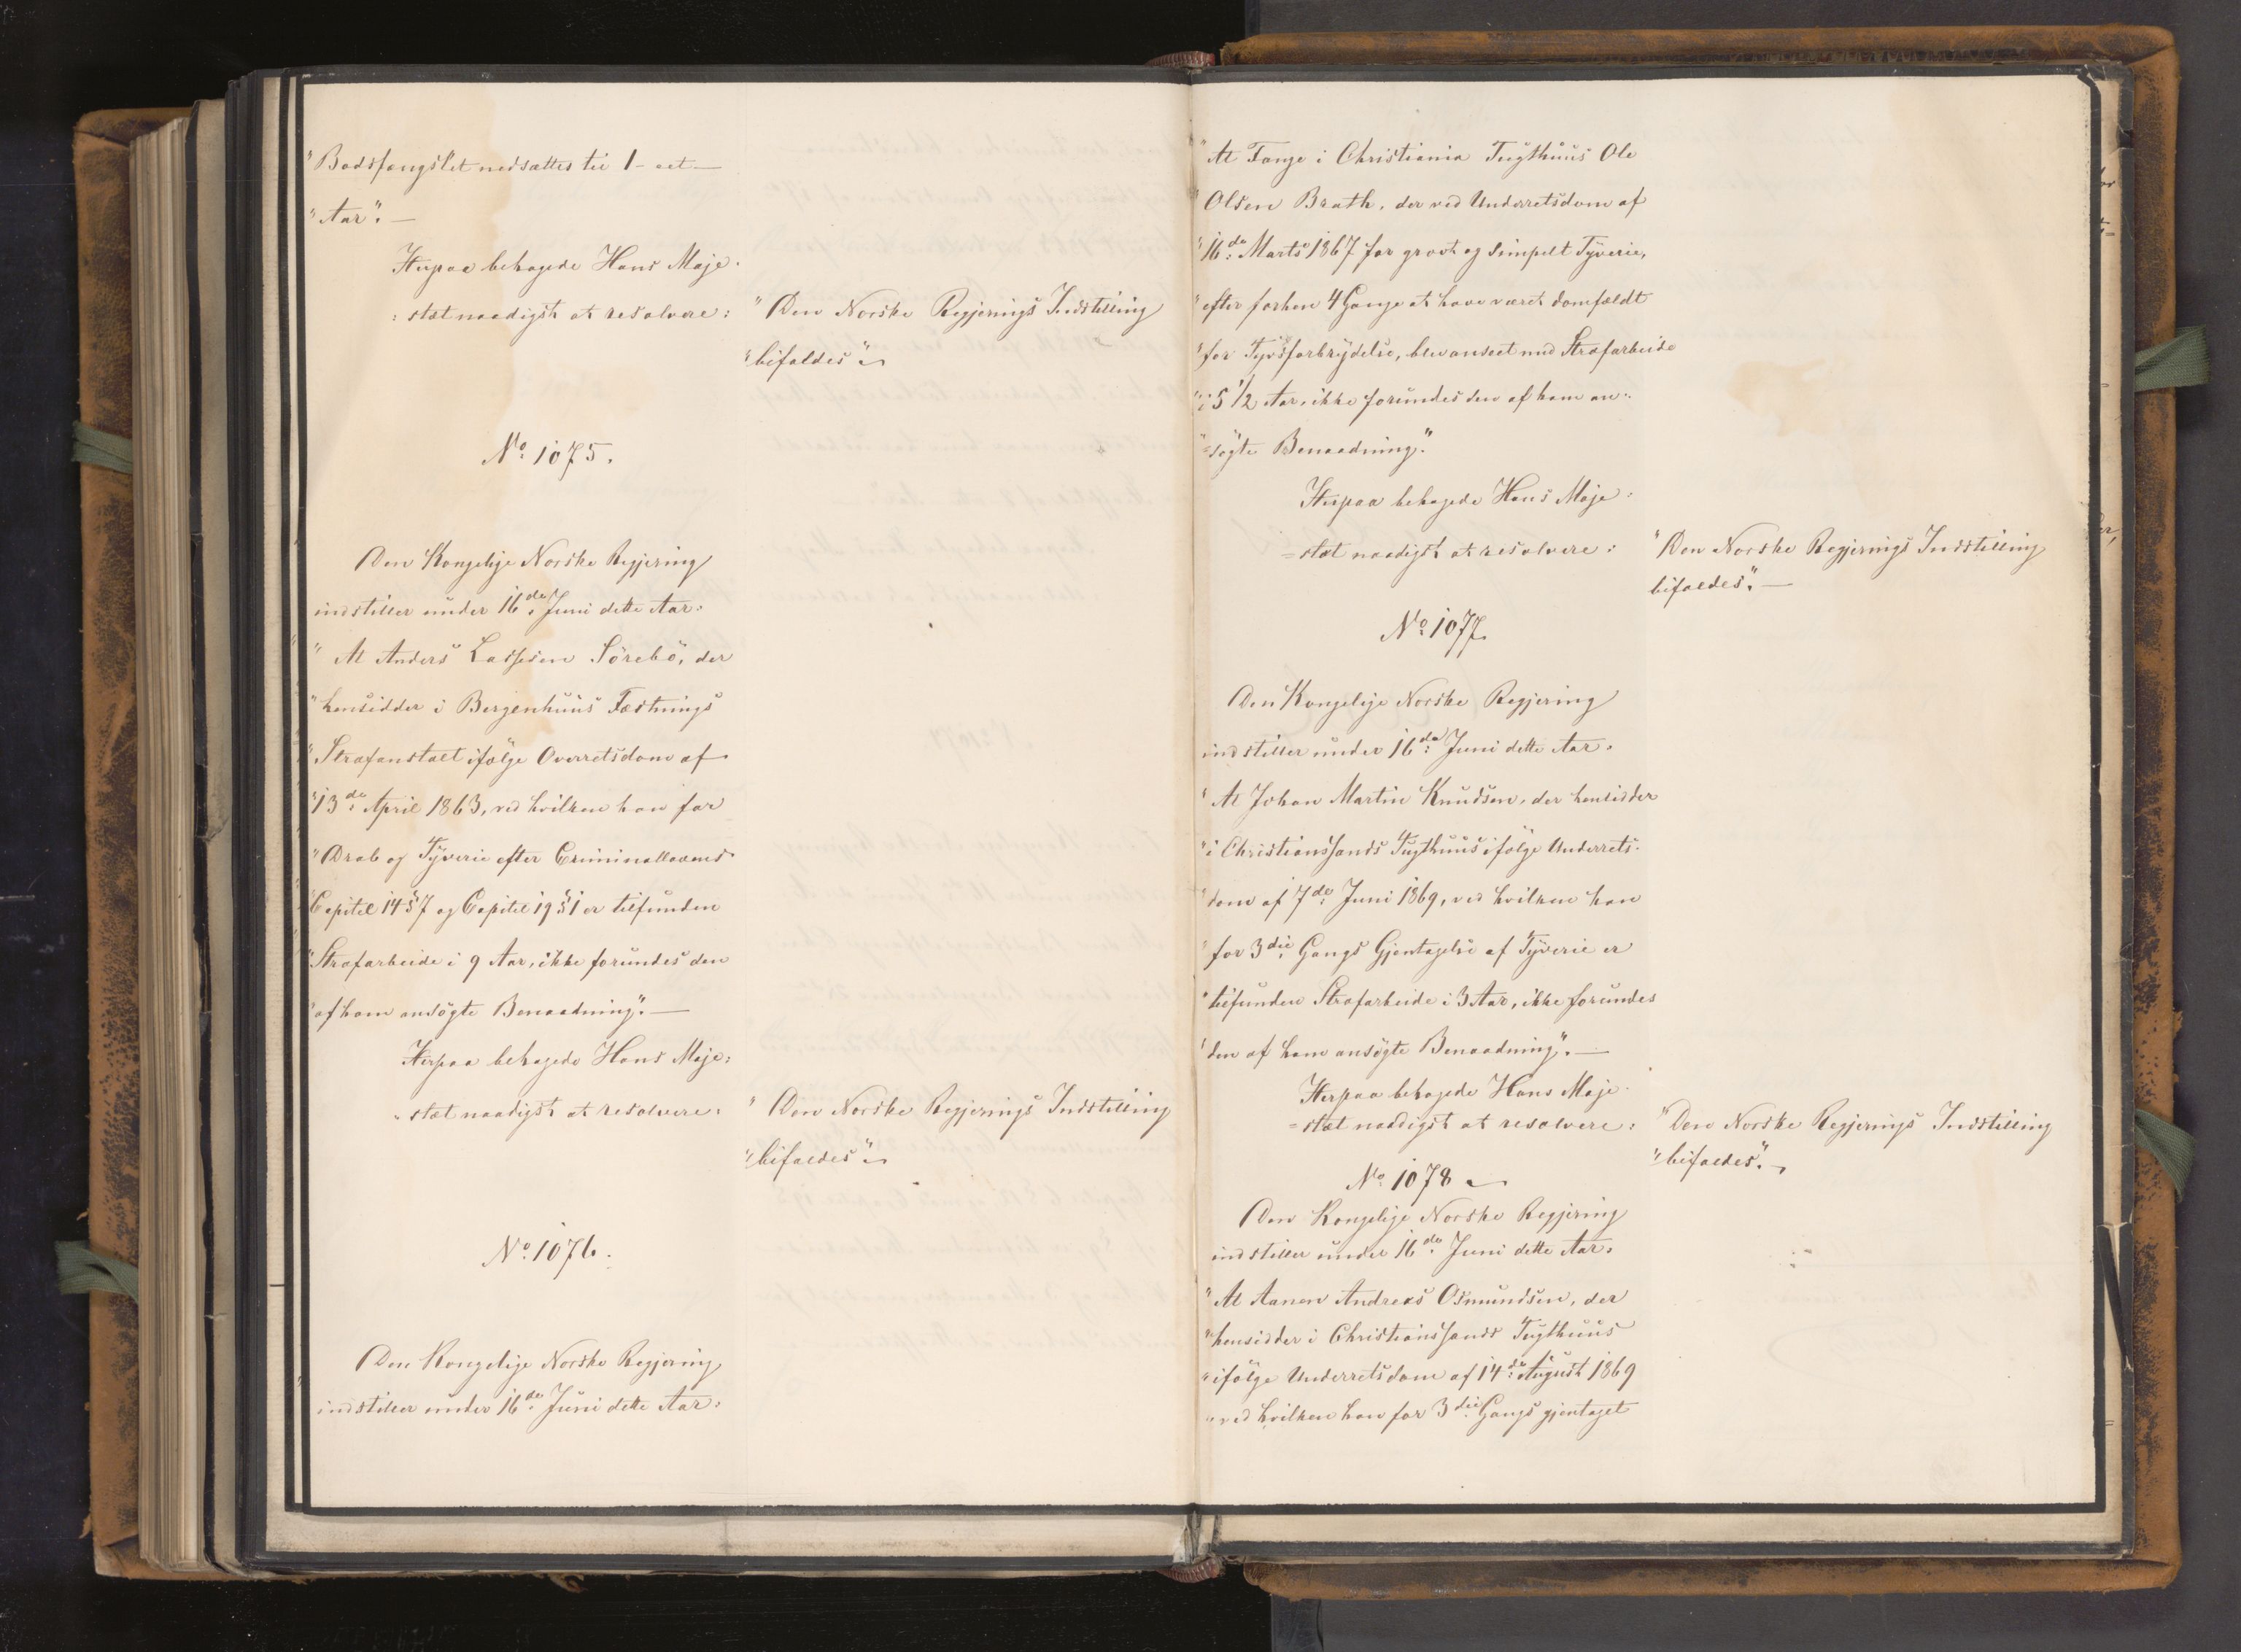 "Bodsfængslet nedsættes til 1 - eet -
"Aar". -
Herpaa behagede Hans Maje-
=stæt naadigst at resolvere:
"Den Norske Regjerings Indstilling
"bifaldes".
No. 1075.
Den Kongelige Norske Regjering
indstiller under 16de Juni dette Aar:
"At Anders Lassesen Sörebö, der
"hensidder i Bergenhuus Fæstnings
"Strafanstalt ifölge Overretsdom af
"13de April 1863, ved hvilken han for
"Drab og Tyverie efter Criminallovens
"Capitel 14 § 7 og Capitel 19 § 1 er tilfunden
"Strafarbeide i 9 Aar, ikke forundes den
"af ham ansögte Benaadning". -
Herpaa behagede Hans Maje=
=stæt naadigst at resolvere:
"Den Norske Regjerings Indstilling
"bifaldes".
No. 1076.
Den Kongelige Norske Regjering
indstiller under 16de Juni dette Aar:
"At Fange i Christiania Tugthuus Ole
"Olsen Brath, der ved Underretsdom af
"16de Marts 1867 for grovt og simpelt Tyverie,
"efter forhen 4 Gange at have været domfældt
"for Tyvsforbrydelse, blev anseet med Strafarbeide
"i 5 1/2 Aar, ikke forundes den af ham an=
"=sögte Benaadning".
Herpaa behagede Hans Maje=
=stæt naadigst at resolvere:
"Den Norske Regjerings Indstilling
bifaldes". -
No. 1077
Den Kongelige Norske Regjering
indstiller under 16de Juni dette Aar:
"At Johan Martin Knudsen, der hensidder
"i Christianssands Tugthuus ifölge Underrets-
"dom af 7de Juni 1869, ved hvilken han
"for 3die Gangs Gjentagelse af Tyverie er
"tilfunden Strafarbeide i 3 Aar, ikke forundes
"den af ham ansögte Benaadning". -
Herpaa behagede Hans Maje-
=stæt naadigst at resolvere:
"Den Norske Regjerings Indstilling
"bifaldes".
No. 1078
Den Kongelige Norske Regjering
indstiller under 16de Juni dette Aar:
"At Aanen Andreas Osmundsen, der
"hensidder i Christianssands Tugthuus
"ifölge Underretsdom af 14de August 1869
"ved hvilken han for 3die Gangs gjentaget